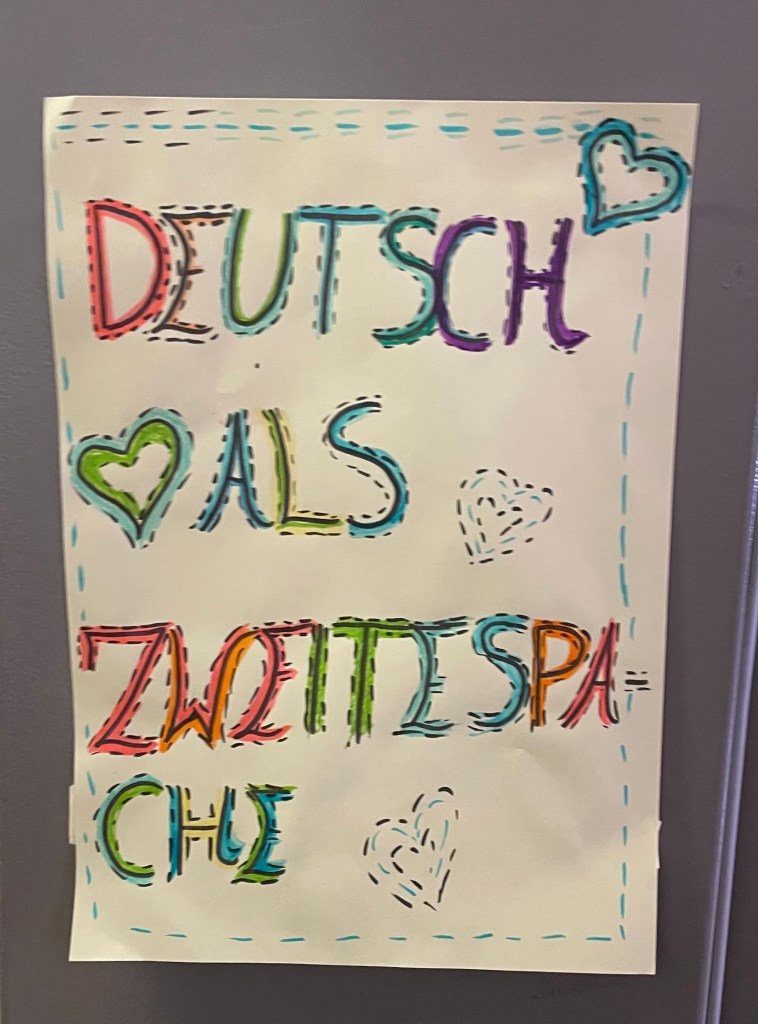 DEUTSCH
ALS
ZWEITESPA=
CHE